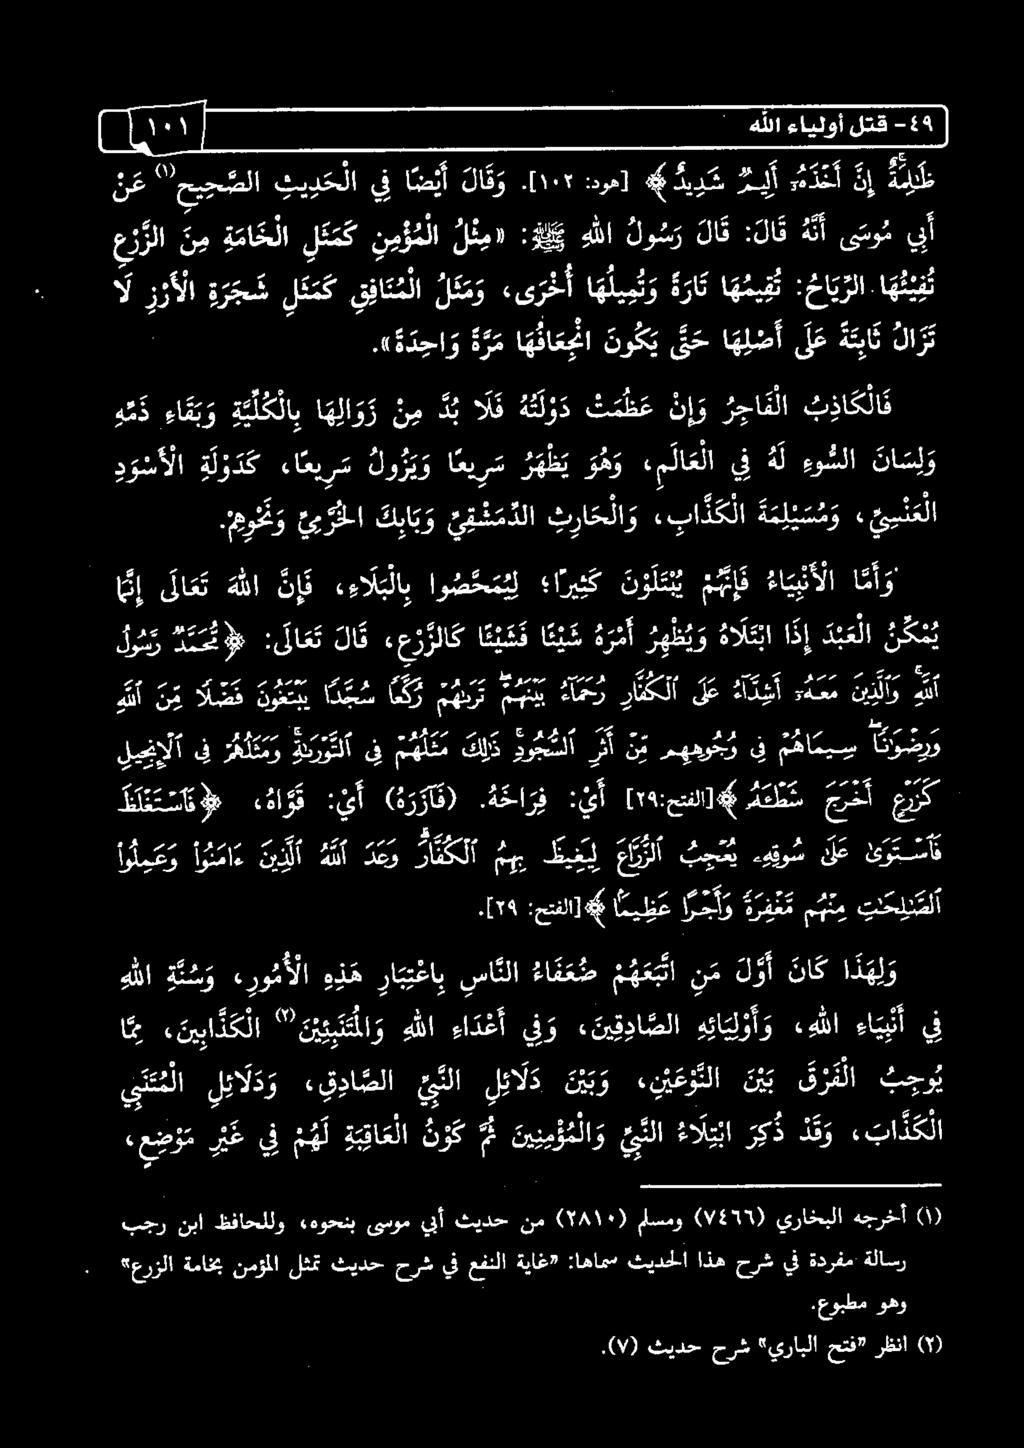 ٤٩- قتل أولياء الله
١٠١
ظَٰلِمَةٌ إِنَّ أَخْذَهُۥٓ أَلِيمٌ شَدِيدٌ﴾ [هود: ١٠٢]. وَقَالَ أَيْضًا فِي الْحَدِيثِ الصَّحِيحِ(١) عَنْ
أَبِي مُوسَى أَنَّهُ قَالَ: قَالَ رَسُولُ اللهِ ﷺ: «مِثْلُ الْمُؤْمِنِ كَمَثَلِ الْخَامَةِ مِنَ الزَّرْعِ
تُفِيْئُهَا الرِّيَاحُ: تُقِيمُهَا تَارَةً وَتُمِيلُهَا أُخْرَى، وَمَثَلُ الْمُنَافِقِ كَمَثَلِ شَجَرَةِ الْأَرْزِ لَا
تَزَالُ ثَابِتَةً عَلَى أَصْلِهَا حَتَّى يَكُونَ انْجِعَافُهَا مَرَّةً وَاحِدَةً».
فَالْكَاذِبُ الْفَاجِرُ وَإِنْ عَظُمَتْ دَوْلَتُهُ فَلَا بُدَّ مِنْ زَوَالِهَا بِالْكُلِّيَّةِ وَبَقَاءِ ذَمِّهِ
وَلِسَانَ السُّوءِ لَهُ فِي الْعَالَمِ، وَهُوَ يَظْهَرُ سَرِيعًا وَيَزُولُ سَرِيعًا، كَدَوْلَةِ الْأَسْوَدِ
الْعَنْسِيِّ، وَمُسَيْلِمَةَ الْكَذَّابِ، وَالْحَارِثِ الدِّمَشْقِيِّ وَبَابِكَ الْخُرَّمِيِّ وَنَحْوِهِمْ.
وَأَمَّا الْأَنْبِيَاءُ فَإِنَّهُمْ يُبْتَلَوْنَ كَثِيرًا؛ لِيُمَحَّصُوا بِالْبَلَاءِ، فَإِنَّ اللهَ تَعَالَى إِنَّمَا
يُمْكِّنُ الْعَبْدَ إِذَا ابْتَلَاهُ وَيُظْهِرُ أَمْرَهُ شَيْئًا فَشَيْئًا كَالزَّرْعِ، قَالَ تَعَالَى: ﴿مُّحَمَّدٌ رَّسُولُ
ٱللَّهِ وَٱلَّذِينَ مَعَهُۥٓ أَشِدَّآءُ عَلَى ٱلْكُفَّارِ رُحَمَآءُ بَيْنَهُمْ تَرَىٰهُمْ رُكَّعًا سُجَّدًا يَبْتَغُونَ فَضْلًا مِّنَ ٱللَّهِ
وَرِضْوَٰنًا سِيمَاهُمْ فِى وُجُوهِهِم مِّنْ أَثَرِ ٱلسُّجُودِ ذَٰلِكَ مَثَلُهُمْ فِى ٱلتَّوْرَىٰةِ وَمَثَلُهُمْ فِى ٱلْإِنجِيلِ
كَزَرْعٍ أَخْرَجَ شَطْـَٔهُۥ﴾[الفتح:٢٩] أَيْ: فِرَاخَهُ. (فَآزَرَهُ) أَيْ: قَوَّاهُ، ﴿فَٱسْتَغْلَظَ
فَٱسْتَوَىٰ عَلَىٰ سُوقِهِۦ يُعْجِبُ ٱلزُّرَّاعَ لِيَغِيظَ بِهِمُ ٱلْكُفَّارَ وَعَدَ ٱللَّهُ ٱلَّذِينَ ءَامَنُوا۟ وَعَمِلُوا۟
ٱلصَّٰلِحَٰتِ مِنْهُم مَّغْفِرَةً وَأَجْرًا عَظِيمًۢا﴾[الفتح: ٢٩].
وَلِهَذَا كَانَ أَوَّلَ مَنِ اتَّبَعَهُمْ ضُعَفَاءُ النَّاسِ بِاعْتِبَارِ هَذِهِ الْأُمُورِ، وَسُنَّةِ اللهِ
فِي أَنْبِيَاءِ اللهِ، وَأَوْلِيَائِهِ الصَّادِقِينَ، وَفِي أَعْدَاءِ اللهِ وَالْمُتَنَبِّئِيْنَ(٢) الْكَذَّابِينَ، مِمَّا
يُوجِبُ الْفَرْقَ بَيْنَ النَّوْعَيْنِ، وَبَيْنَ دَلَائِلِ النَّبِيِّ الصَّادِقِ، وَدَلَائِلِ الْمُتَنَبِي
الْكَذَّابَ، وَقَدْ ذُكِرَ ابْتِلَاءُ النَّبِيِّ وَالْمُؤْمِنِينَ ثُمَّ كَوْنُ الْعَاقِبَةِ لَهُمْ فِي غَيْرِ مَوْضِعٍ،
(١) أخرجه البخاري (٧٤٦٦) ومسلم (٢٨١٠) من حديث أبي موسى بنحوه، وللحافظ ابن رجب
رسالة مفردة في شرح هذا الحديث سماها: «غاية النفع في شرح حديث تمثل المؤمن بخامة الزرع»
وهو مطبوع.
(٢) انظر «فتح الباري» شرح حديث (٧).